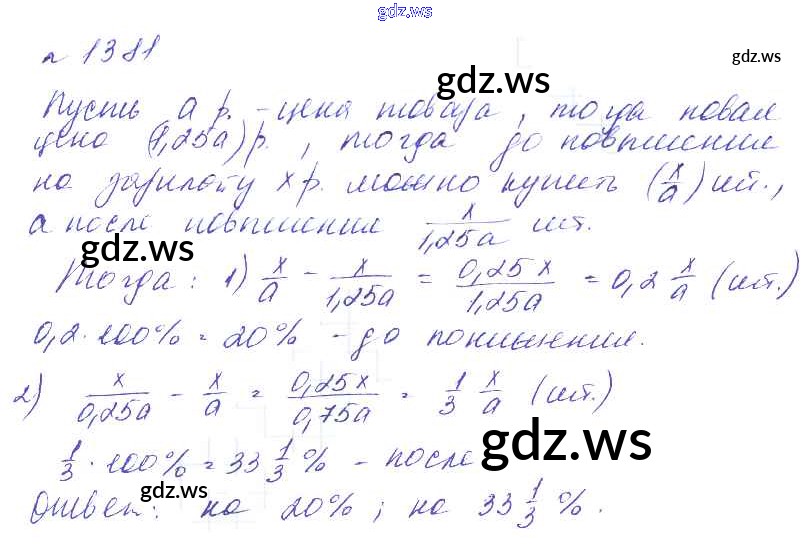 gdz.ws
№ 1381
gdz.ws
gdz.ws
Пусть а р. - цена товара, тогда новая
цена (1,25а) р., тогда до повышения
на зарплату х р. можно купить (x/a) шт.,
а после повышения x/1,25a шт.
gdz.ws
Тогда: 1) x/a - x/1,25a = 0,25x/1,25a = 0,2 x/a (шт.)
0,2 · 100% = 20% - до понижения.
2) x/0,25a - x/a = 0,25x/0,75a = 1/3 x/a (шт.)
gdz.ws
1/3 · 100% = 33 1/3 % - после
gdz.ws
Ответ: на 20%; на 33 1/3 %.
gdz.ws